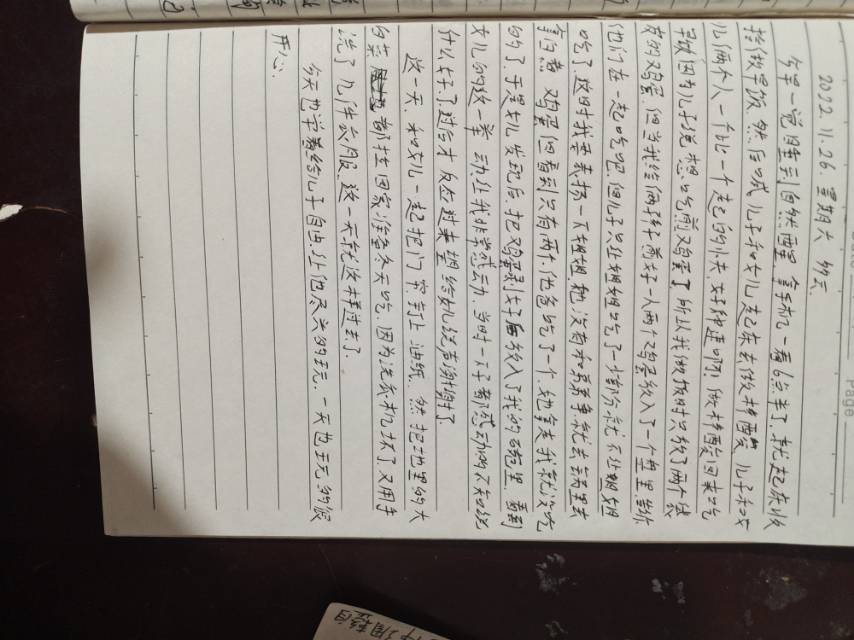 2022.11.26. 星期六 多云.
今早一觉睡到自然醒里拿手机一看6点半了,就起床收
拾做早饭.然后喊儿子和女儿起床去做核酸,儿子和女
儿俩个人一个比一个起的快.好神速啊,做核酸回来吃
早饭因为儿子说想吃煎鸡蛋了所以我做饭时只煎了两个袋
煎的鸡蛋.但当我给俩孩子煎好一人两个鸡蛋放入了一个盘里给
他们在一起吃吧.但儿子只让姐姐吃了一部分就不让姐姐
吃了这时我要表扬一下姐姐她没有和弟弟争就去锅里去
拿煮鸡蛋但看到只有两个,他爸吃了一个.她拿走我就没吃
的了于是女儿发现后.把鸡蛋剥好后放入了我的碗里.看到
女儿的这一举动让我非常感动.当时一下子都感动的不知说
什么好了.过后才反应过来望给女儿说声谢谢了.
这一天.和女儿一起把门帘钉上油纸.然把地里的大
白菜都拉回家准备冬天吃.因为洗衣机坏了.又用手
洗了几件衣服.这一天就这样过去了.
今天也学着给儿子自由.让他尽兴的玩.一天也玩的很
开心.
Page